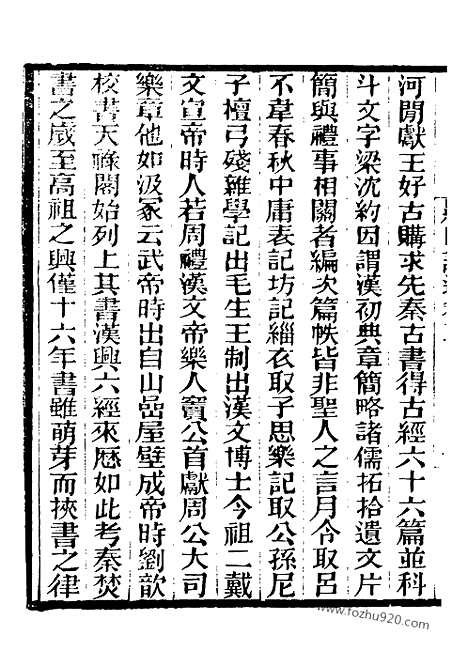 河閒獻王好古購求先秦古書得古經六十六篇並科
斗文字梁沈約因謂漢初典章簡略諸儒拓拾遺文片
簡與禮事相關者編次篇帙皆非聖人之言月令取呂
不韋春秋中庸表記坊記緇衣取子思樂記取公孫尼
子檀弓殘雜學記出毛生王制出漢文博士今祖二戴
文宣帝時人若周禮漢文帝樂人竇公首獻周公大司
樂章他如汲冢云武帝時出自山嵒屋壁成帝時劉歆
校書天祿閣始列上其書漢興六經來厯如此考秦焚
書之歲至高祖之興僅十六年書雖萌芽而挾書之律
www.fozhu920.com